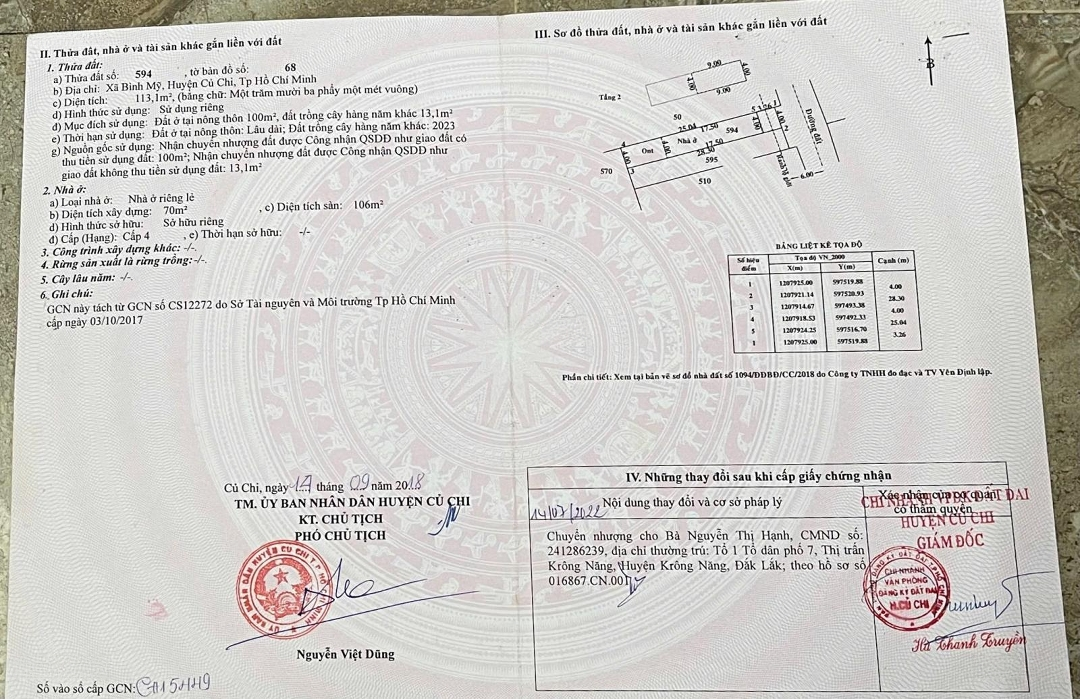 II. Thửa đất, nhà ở và tài sản khác gắn liền với đất
1. Thửa đất:
a) Thửa đất số: 594 , tờ bản đồ số: 68
b) Địa chỉ: Xã Bình Mỹ, Huyện Củ Chi, Tp Hồ Chí Minh
c) Diện tích: 113,1m², (bằng chữ: Một trăm mười ba phẩy một mét vuông)
d) Hình thức sử dụng: Sử dụng riêng
đ) Mục đích sử dụng: Đất ở tại nông thôn 100m², đất trồng cây hàng năm khác 13,1m²
e) Thời hạn sử dụng: Đất ở tại nông thôn: Lâu dài; Đất trồng cây hàng năm khác: 2023
g) Nguồn gốc sử dụng: Nhận chuyển nhượng đất được Công nhận QSDĐ như giao đất có
thu tiền sử dụng đất: 100m²; Nhận chuyển nhượng đất được Công nhận QSDĐ như
giao đất không thu tiền sử dụng đất: 13,1m²
2. Nhà ở:
a) Loại nhà ở: Nhà ở riêng lẻ
b) Diện tích xây dựng: 70m² , c) Diện tích sàn: 106m²
d) Hình thức sở hữu: Sở hữu riêng
đ) Cấp (Hạng): Cấp 4 , e) Thời hạn sở hữu: -/-
3. Công trình xây dựng khác: -/-.
4. Rừng sản xuất là rừng trồng:-/-.
5. Cây lâu năm: -/-.
6. Ghi chú:
GCN này tách từ GCN số CS12272 do Sở Tài nguyên và Môi trường Tp Hồ Chí Minh
cấp ngày 03/10/2017
Củ Chi, ngày 14 tháng 09 năm 2018
TM. ỦY BAN NHÂN DÂN HUYỆN CỦ CHI
KT. CHỦ TỊCH
PHÓ CHỦ TỊCH
Nguyễn Việt Dũng
Số vào sổ cấp GCN:
III. Sơ đồ thửa đất, nhà ở và tài sản khác gắn liền với đất
B
Tầng 2
9.00
4.00
4.00
9.00
50
25.04 17.50 594
5 3.26 1
4.00
2
Đường đất
4
4.00
Ont
4.00
Nhà ở
17.50
28.30
595
3
570
510
6.00
BẢNG LIỆT KÊ TỌA ĐỘ
Số hiệu điểm
Tọa độ VN_2000
Cạnh (m)
X(m) Y(m)
1 1207925.00 597519.88
4.00
2 1207921.14 597520.93
28.30
3 1207914.67 597493.38
4.00
4 1207918.53 597492.33
25.04
5 1207924.25 597516.70
3.26
1 1207925.00 597519.88
Phần chi tiết: Xem tại bản vẽ sơ đồ nhà đất số 1094/ĐĐBĐ/CC/2018 do Công ty TNHH đo đạc và TV Yên Định lập.
IV. Những thay đổi sau khi cấp giấy chứng nhận
Nội dung thay đổi và cơ sở pháp lý
Xác nhận của cơ quan
có thẩm quyền
14/07/2022
Chuyển nhượng cho Bà Nguyễn Thị Hạnh, CMND số:
241286239, địa chỉ thường trú: Tổ 1 Tổ dân phố 7, Thị trấn
Krông Năng, Huyện Krông Năng, Đăk Lăk; theo hồ sơ số
016867.CN.001
CHI NHÁNH VPĐK ĐẤT ĐAI
HUYỆN CỦ CHI
GIÁM ĐỐC
CHI NHÁNH
VĂN PHÒNG
ĐĂNG KÝ ĐẤT ĐAI
H.CỦ CHI
Hà Thanh Truyền